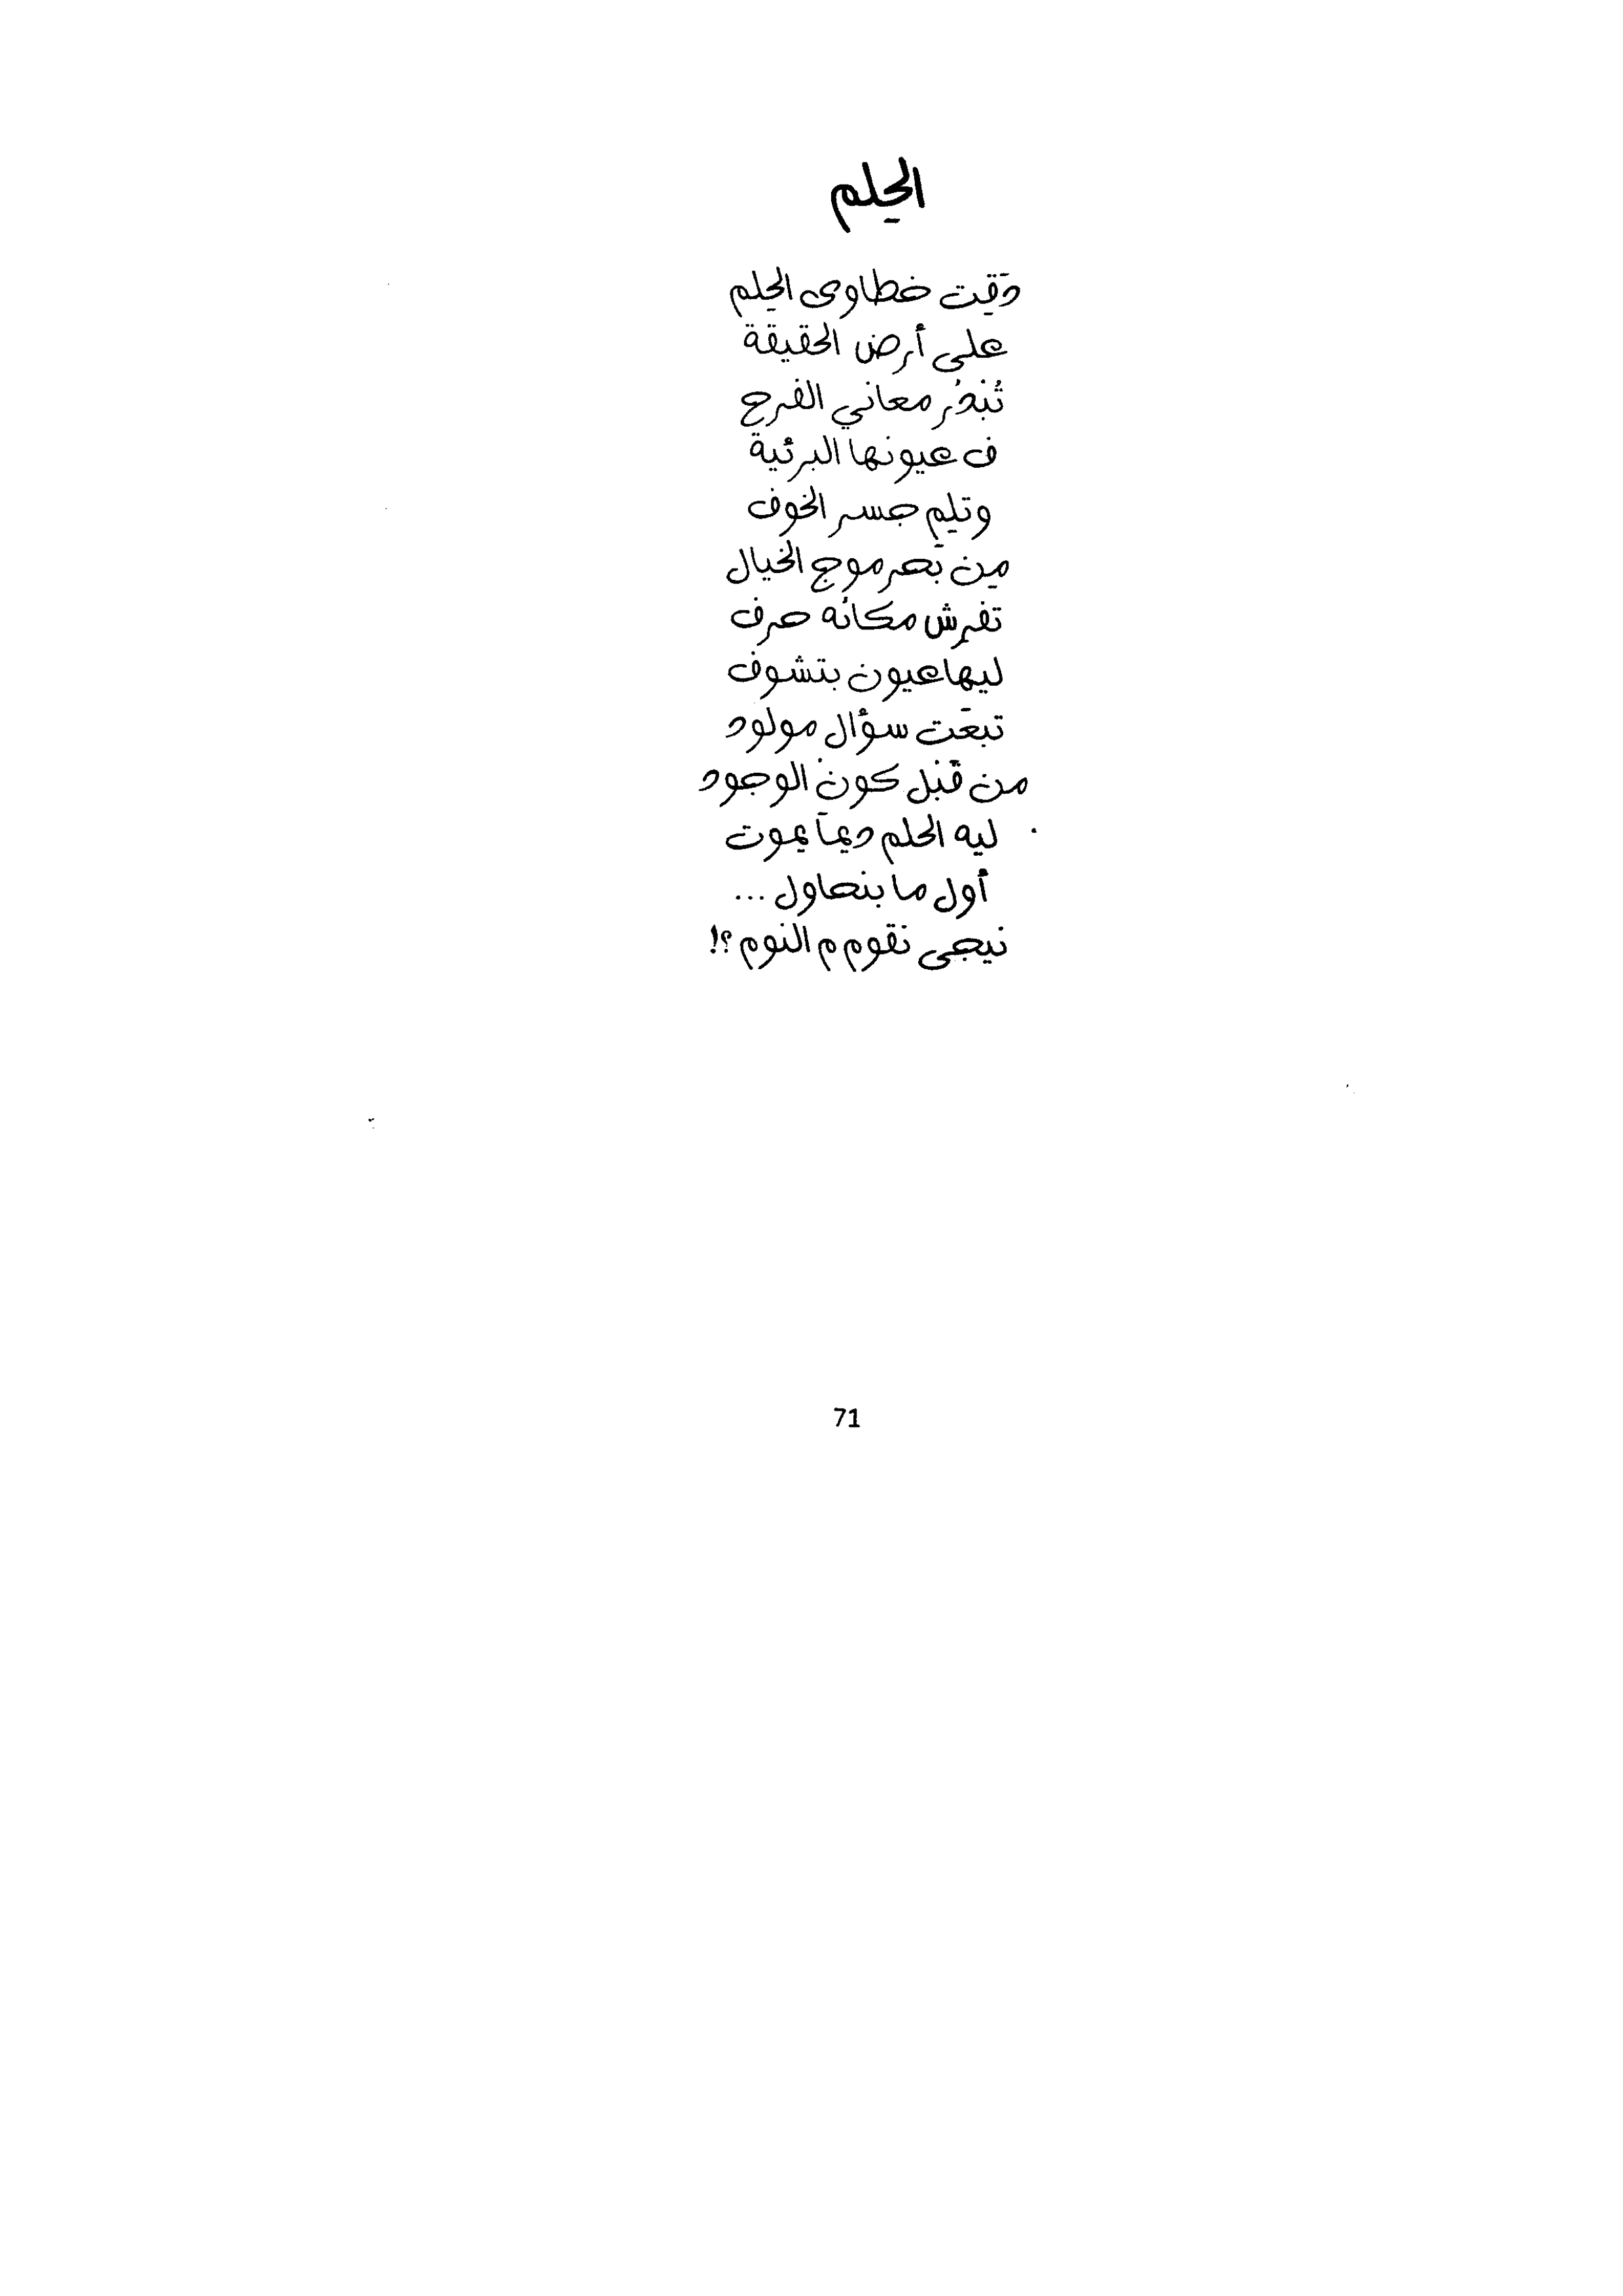 الحِلم
دَقِّت خطاوى الحِلم
على أرض الحقيقة
تُبْدُر معاني الفرح
ف عيونها البرئية
وتلِم جسر الخوف
مِن بَحر موج الخيال
تفرش مكانُه حرف
ليها عيون بتشوف
تبعَت سؤال مولود
من قَبْل كونْ الوجود
ليه الحلم ديمَاً يموت
أول ما بنحاول ...
نيجى نقوم م النوم ؟!
71